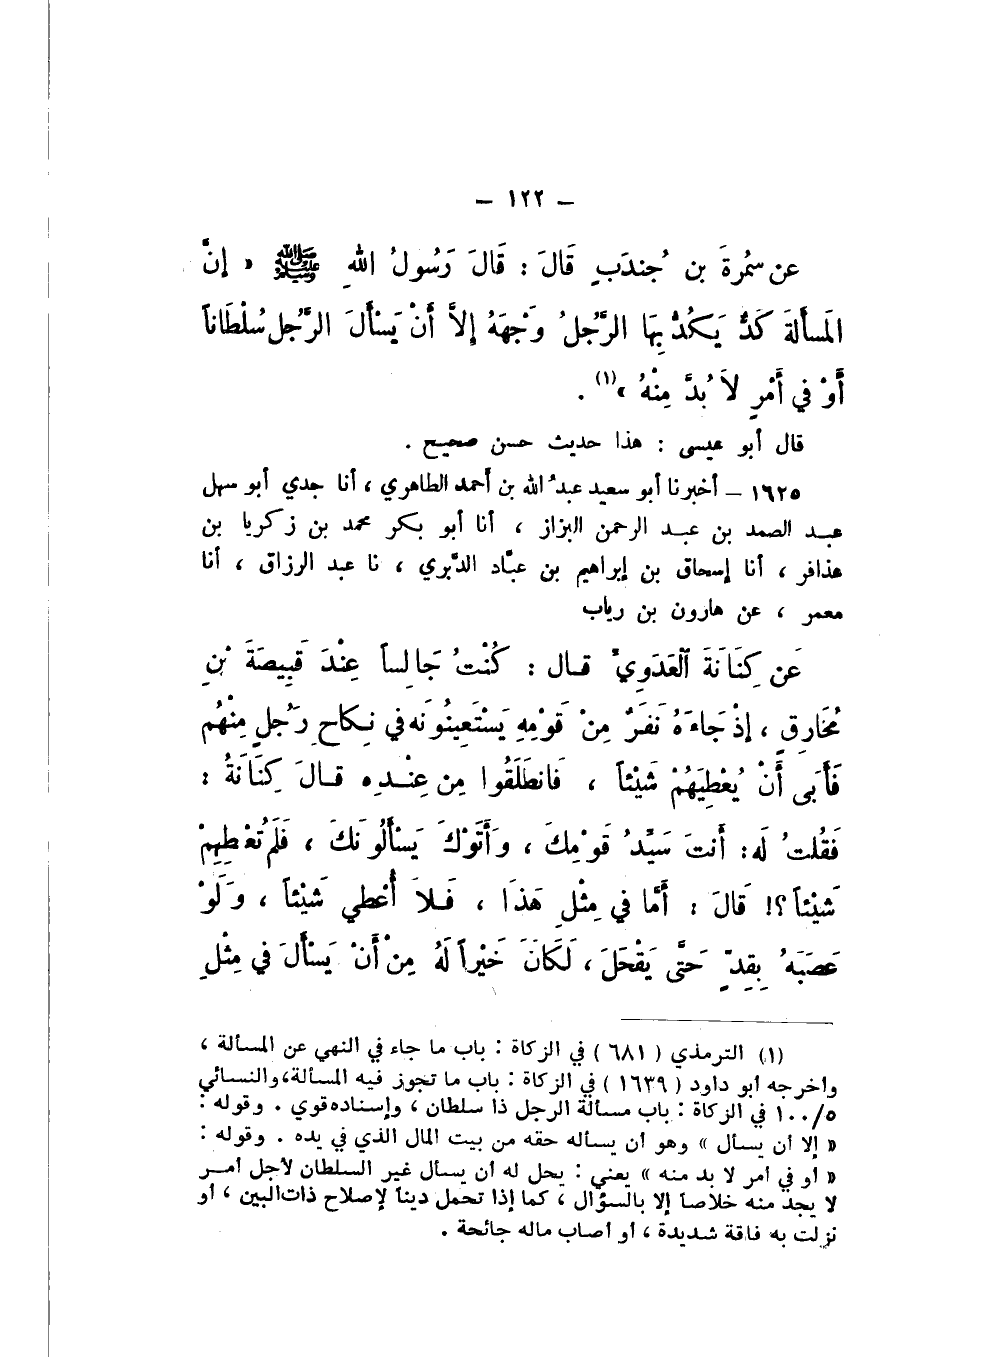 – ١٢٢ –
عن سَمُرةَ بن جُندَبٍ قَالَ : قَالَ رَسُولُ اللهِ ﷺ « إنَّ
المَسأَلَةَ كَدٌّ يَكُدُّ بِهَا الرَّجُلُ وَجْهَهُ إلاَّ أَنْ يَسْأَلَ الرَّجُل سُلْطَاناً
أَوْ في أَمْرٍ لاَ بُدَّ مِنْهُ »(١) .
قال أبو عيسى : هذا حديث حسن صحيح .
١٦٢٥ – أخبرنا أبو سعيد عبدُ الله بن أحمد الطاهري ، أنا جدي أبو سهل
عبـد الصمد بن عبـد الرحمن البزاز ، أنا أبو بكر محمد بن زكريا بن
عذافر ، أنا إسحاق بن إبراهيم بن عبَّاد الدَّبري ، نا عبد الرزاق ، أنا
معمر ، عن هارون بن رياب
عَن كِنَانَةَ العَدَوِيِّ قـال : كُنْتُ جَالِساً عِنْدَ قَبِيصَةَ بْنِ
مُخَارِقٍ ، إذْ جَاءَهُ نَفَرٌ مِنْ قَوْمِهِ يَسْتَعِينُونَه في نِكاحِ رَجُلٍ مِنْهُم
فَأَبَى أَنْ يُعْطِيَهُمْ شَيْئاً ، فَانطَلَقُوا مِن عِنْـدِه قـالَ كِنَانَةُ :
فَقُلتُ لَه: أَنتَ سَيِّدُ قَومِكَ ، وَأَتَوْكَ يَسْأَلُونَكَ ، فَلَم تُعْطِهِمْ
شَيْئاً ؟! قَالَ : أَمَّا في مِثْلِ هَذَا ، فَـلاَ أُعْطي شَيْئاً ، وَلَوْ
عَصَبَهُ بِقِدٍّ حَتَّى يَقْحَلَ ، لَكَانَ خَيْراً لَهُ مِنْ أَنْ يَسْأَلَ في مِثْلِ
(١) الترمذي ( ٦٨١ ) في الزكاة : باب ما جاء في النهي عن المسألة ،
وأخرجه أبو داود ( ١٦٣٩ ) في الزكاة : باب ما تجوز فيه المسألة، والنسائي
٥/١٠٠ في الزكاة : باب مسألة الرجل ذا سلطان ، وإسناده قوي . وقوله :
« إلا أن يسأل » وهو أن يسأله حقه من بيت المال الذي في يده . وقوله :
« أو في أمر لا بد منه » يعني : يحل له أن يسأل غير السلطان لأجل أمـر
لا يجد منه خلاصاً إلا بالسؤال ، كما إذا تحمل ديناً لإصلاح ذات البين ، أو
نزلت به فاقة شديدة ، أو أصاب ماله جائحة .